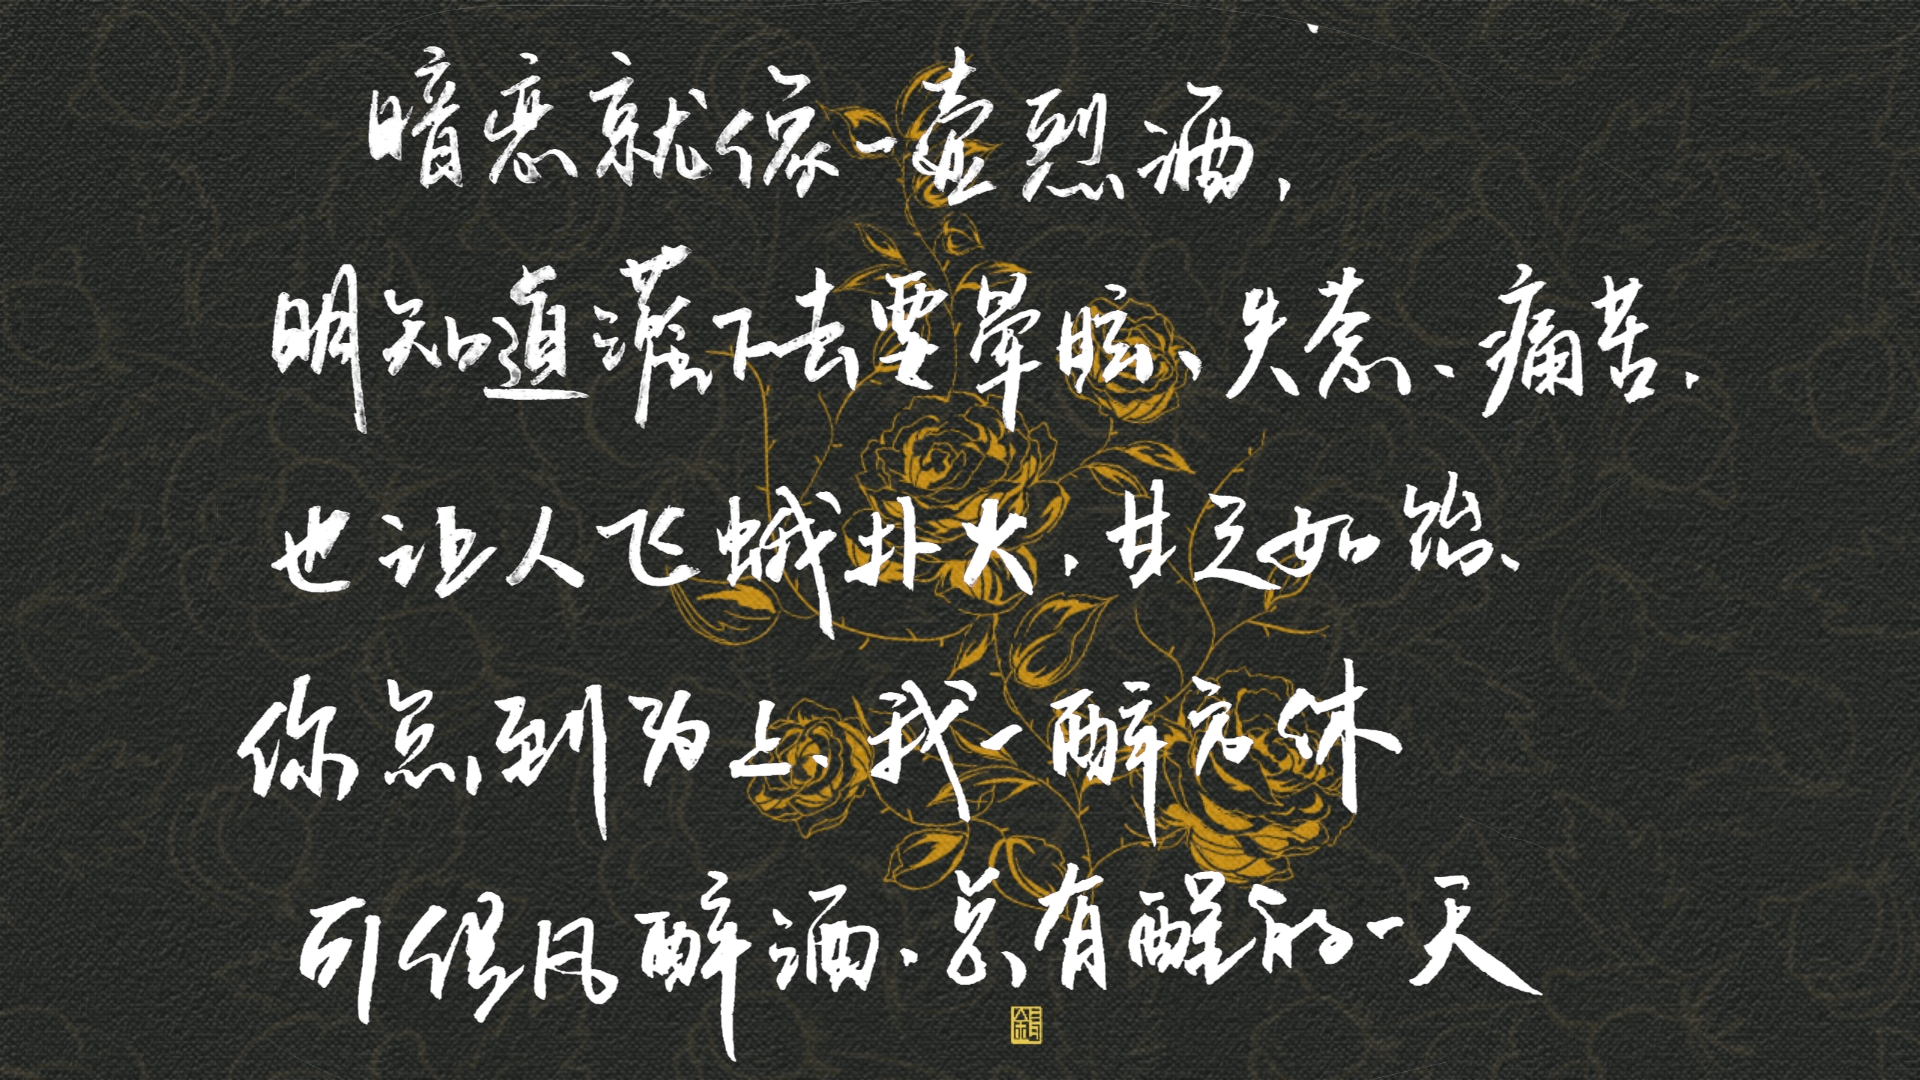 暗恋就像一壶烈酒,
明知道灌下去要晕眩、失态、痛苦.
也让人飞蛾扑火,甘之如饴、
你点到为止、我一醉方休
可假风醉酒、总有醒的一天